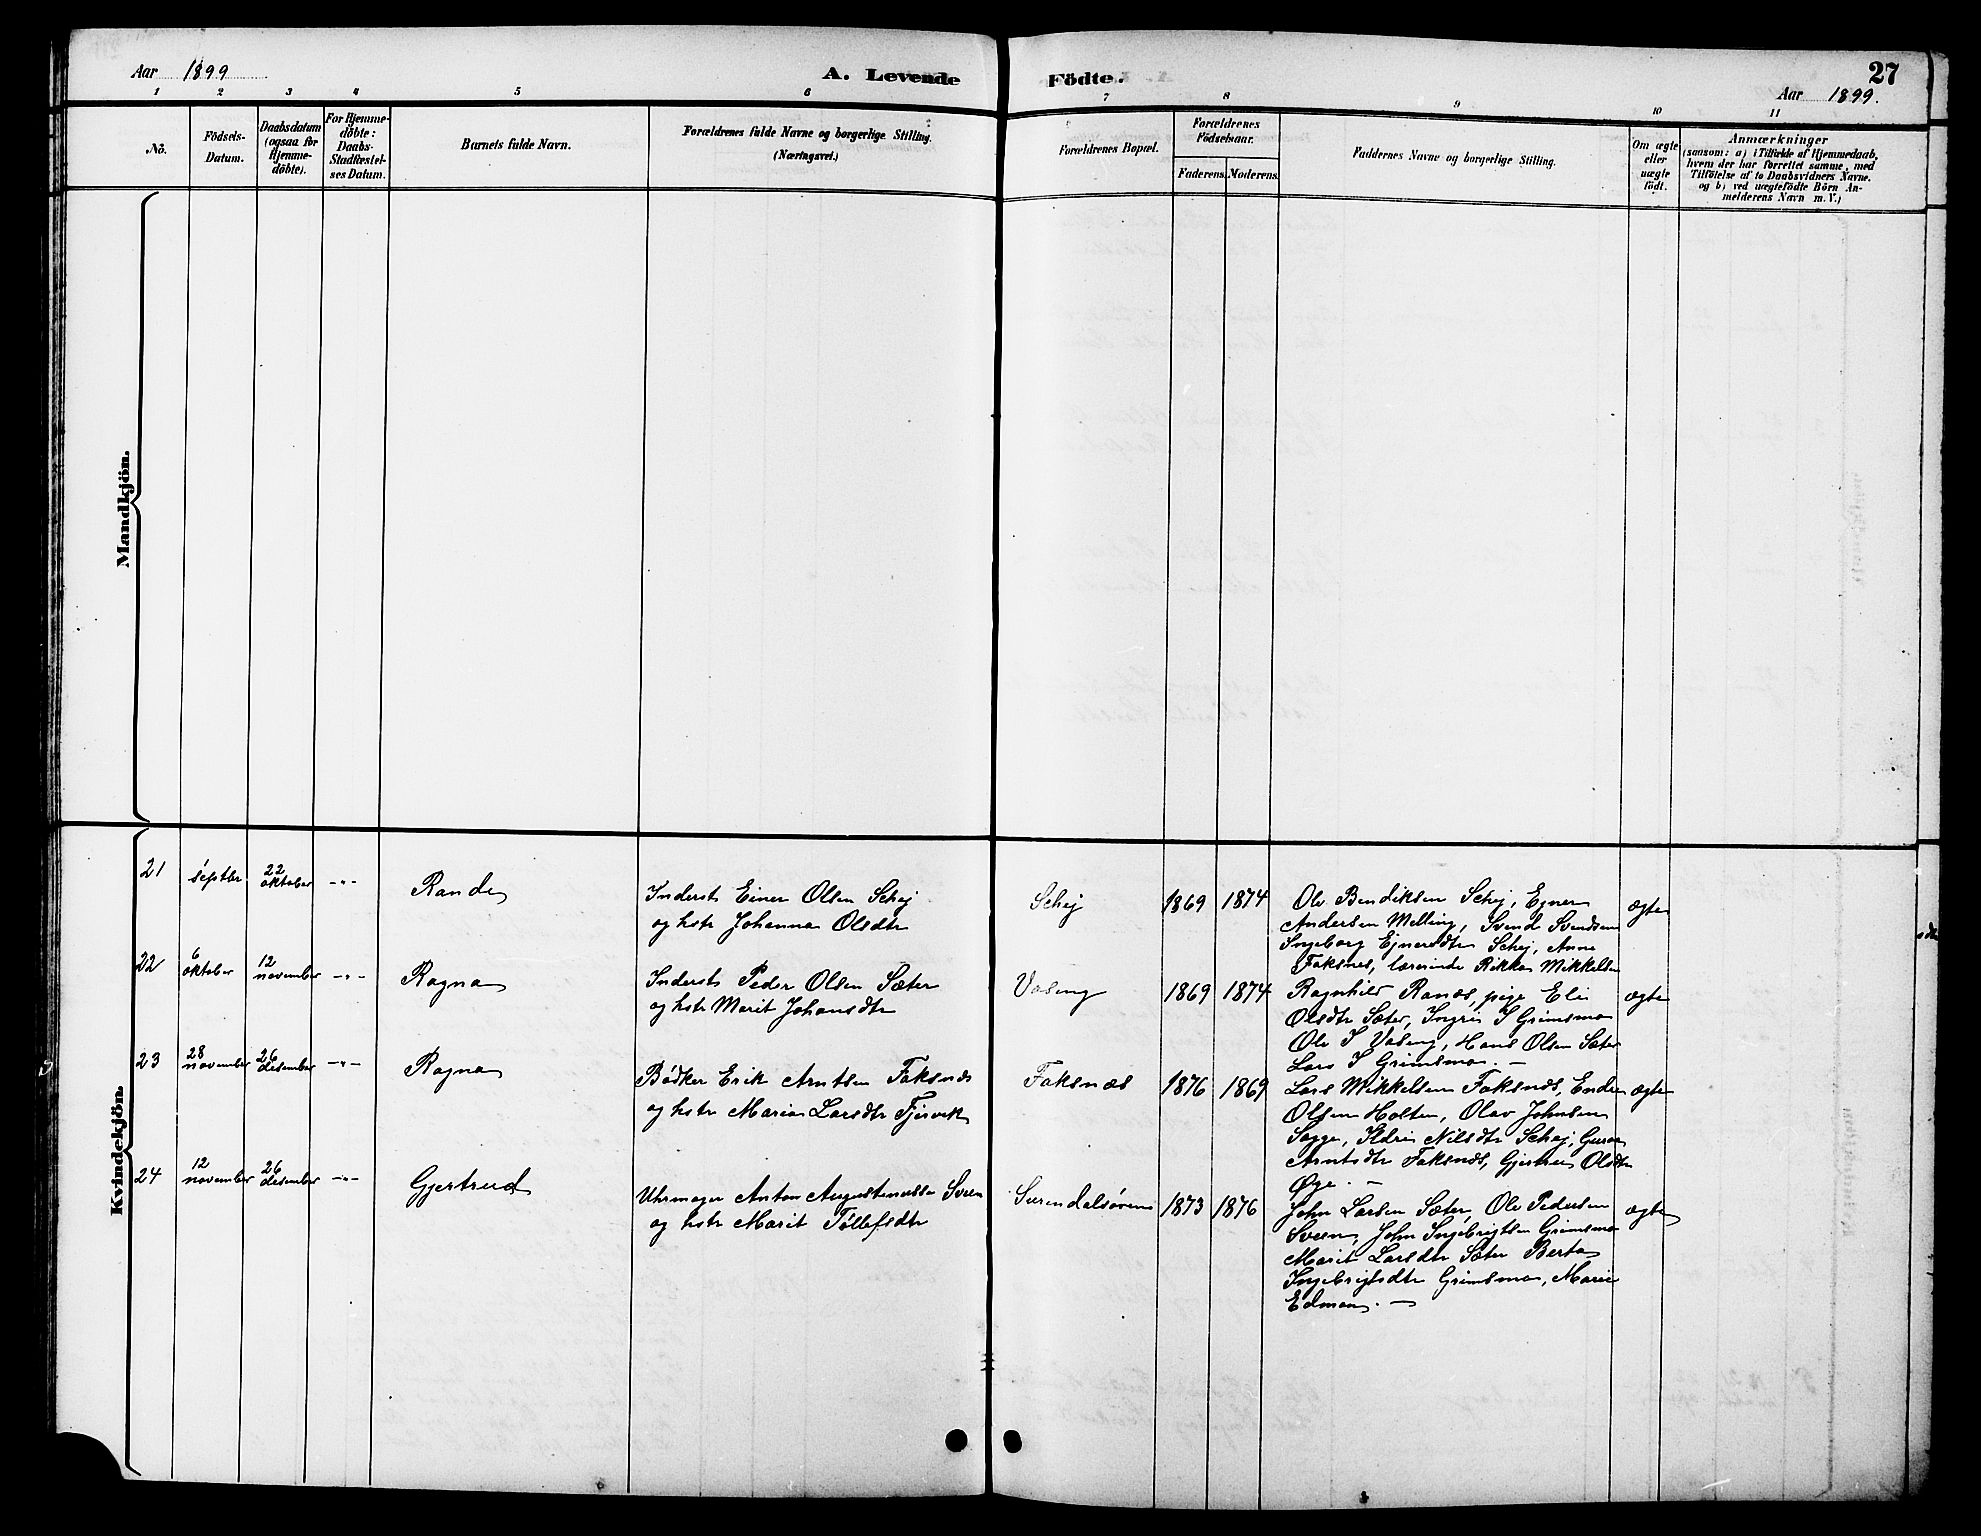 Aar 1899
A. Levende
Födte.
27
Aar 1899.
1 2 3 4 5 6 7 8 9 10 11
Nö.
Födsels-
Datum.
Daabsdatum
(ogsaa for
Hjemme-
döbte).
For Hjemme-
döbte:
Daabs-
Stadfæstel-
ses Datum.
Barnets fulde Navn.
Forældrenes fulde Navne og borgerlige Stilling.
(Næringsvei.)
Forældrenes Bopæl.
Forældrenes
Födselsaar.
Faderens. Moderens.
Faddernes Navne og borgerlige Stilling.
Om ægte
eller
uægte
født.
Anmærkninger
(saasom: a) i Tilfælde af Hjemmedaab,
hvem der har forrettet samme, med
Tilföielse af to Daabsvidners Navne,
og b) ved uægtefödte Börn An-
melderens Navn m. V.)
Mandkjön.
Kvindekjön.
21
septbr
22
oktober
-"-
Rande
Inderst Einer Olsen Schej
og hstr Johanna Olsdtr
Schej
1869 1874
Ole Bendiksen Schej, Egner
Andersen Melling, Svend Svendsen
Ingeborg Ejnersdtr Schej, Anne
Faksnes, lærerinde Rikka Mikkelsen
ægte
22
6
oktober
12
november
-"-
Ragna
Inderst Peder Olsen Sæter
og hstr Marit Johansdtr
Vaseng
1869 1874
Ragnhild Ranæs, pige Eli
Olsdtr Sæter, Ingri I Grimsmo
Ole I Vaseng, Hans Olsen Sæter
Lars I Grimsmo. —
ægte
23
28
november
26
desember
-"-
Ragna
Bödker Erik Arntsen Faksnæs
og hstr Maria Larsdtr Fjervik
Faksnæs
1876 1869
Lars Mikkelsen Faksnæs, Endre
Olsen Holten, Olav Johnsen
Sogge, Ildri Nilsdtr Schej, Guroe
Arntsdtr Faksnæs, Gjertrud Olsdtr
Øye. —
ægte
24
12
november
26
desember
-"-
Gjertrud
Uhrmager Anton Augustinussen Sveen
og hstr Marit Tøllefsdtr
Surendalsøren
1873 1876
John Larsen Sæter, Ole Pedersen
Sveen, John Ingebrigtsen Grimsmo
Marit Larsdtr Sæter Berta
Ingebrigtsdtr Grimsmo, Marie
Edman. —
ægte